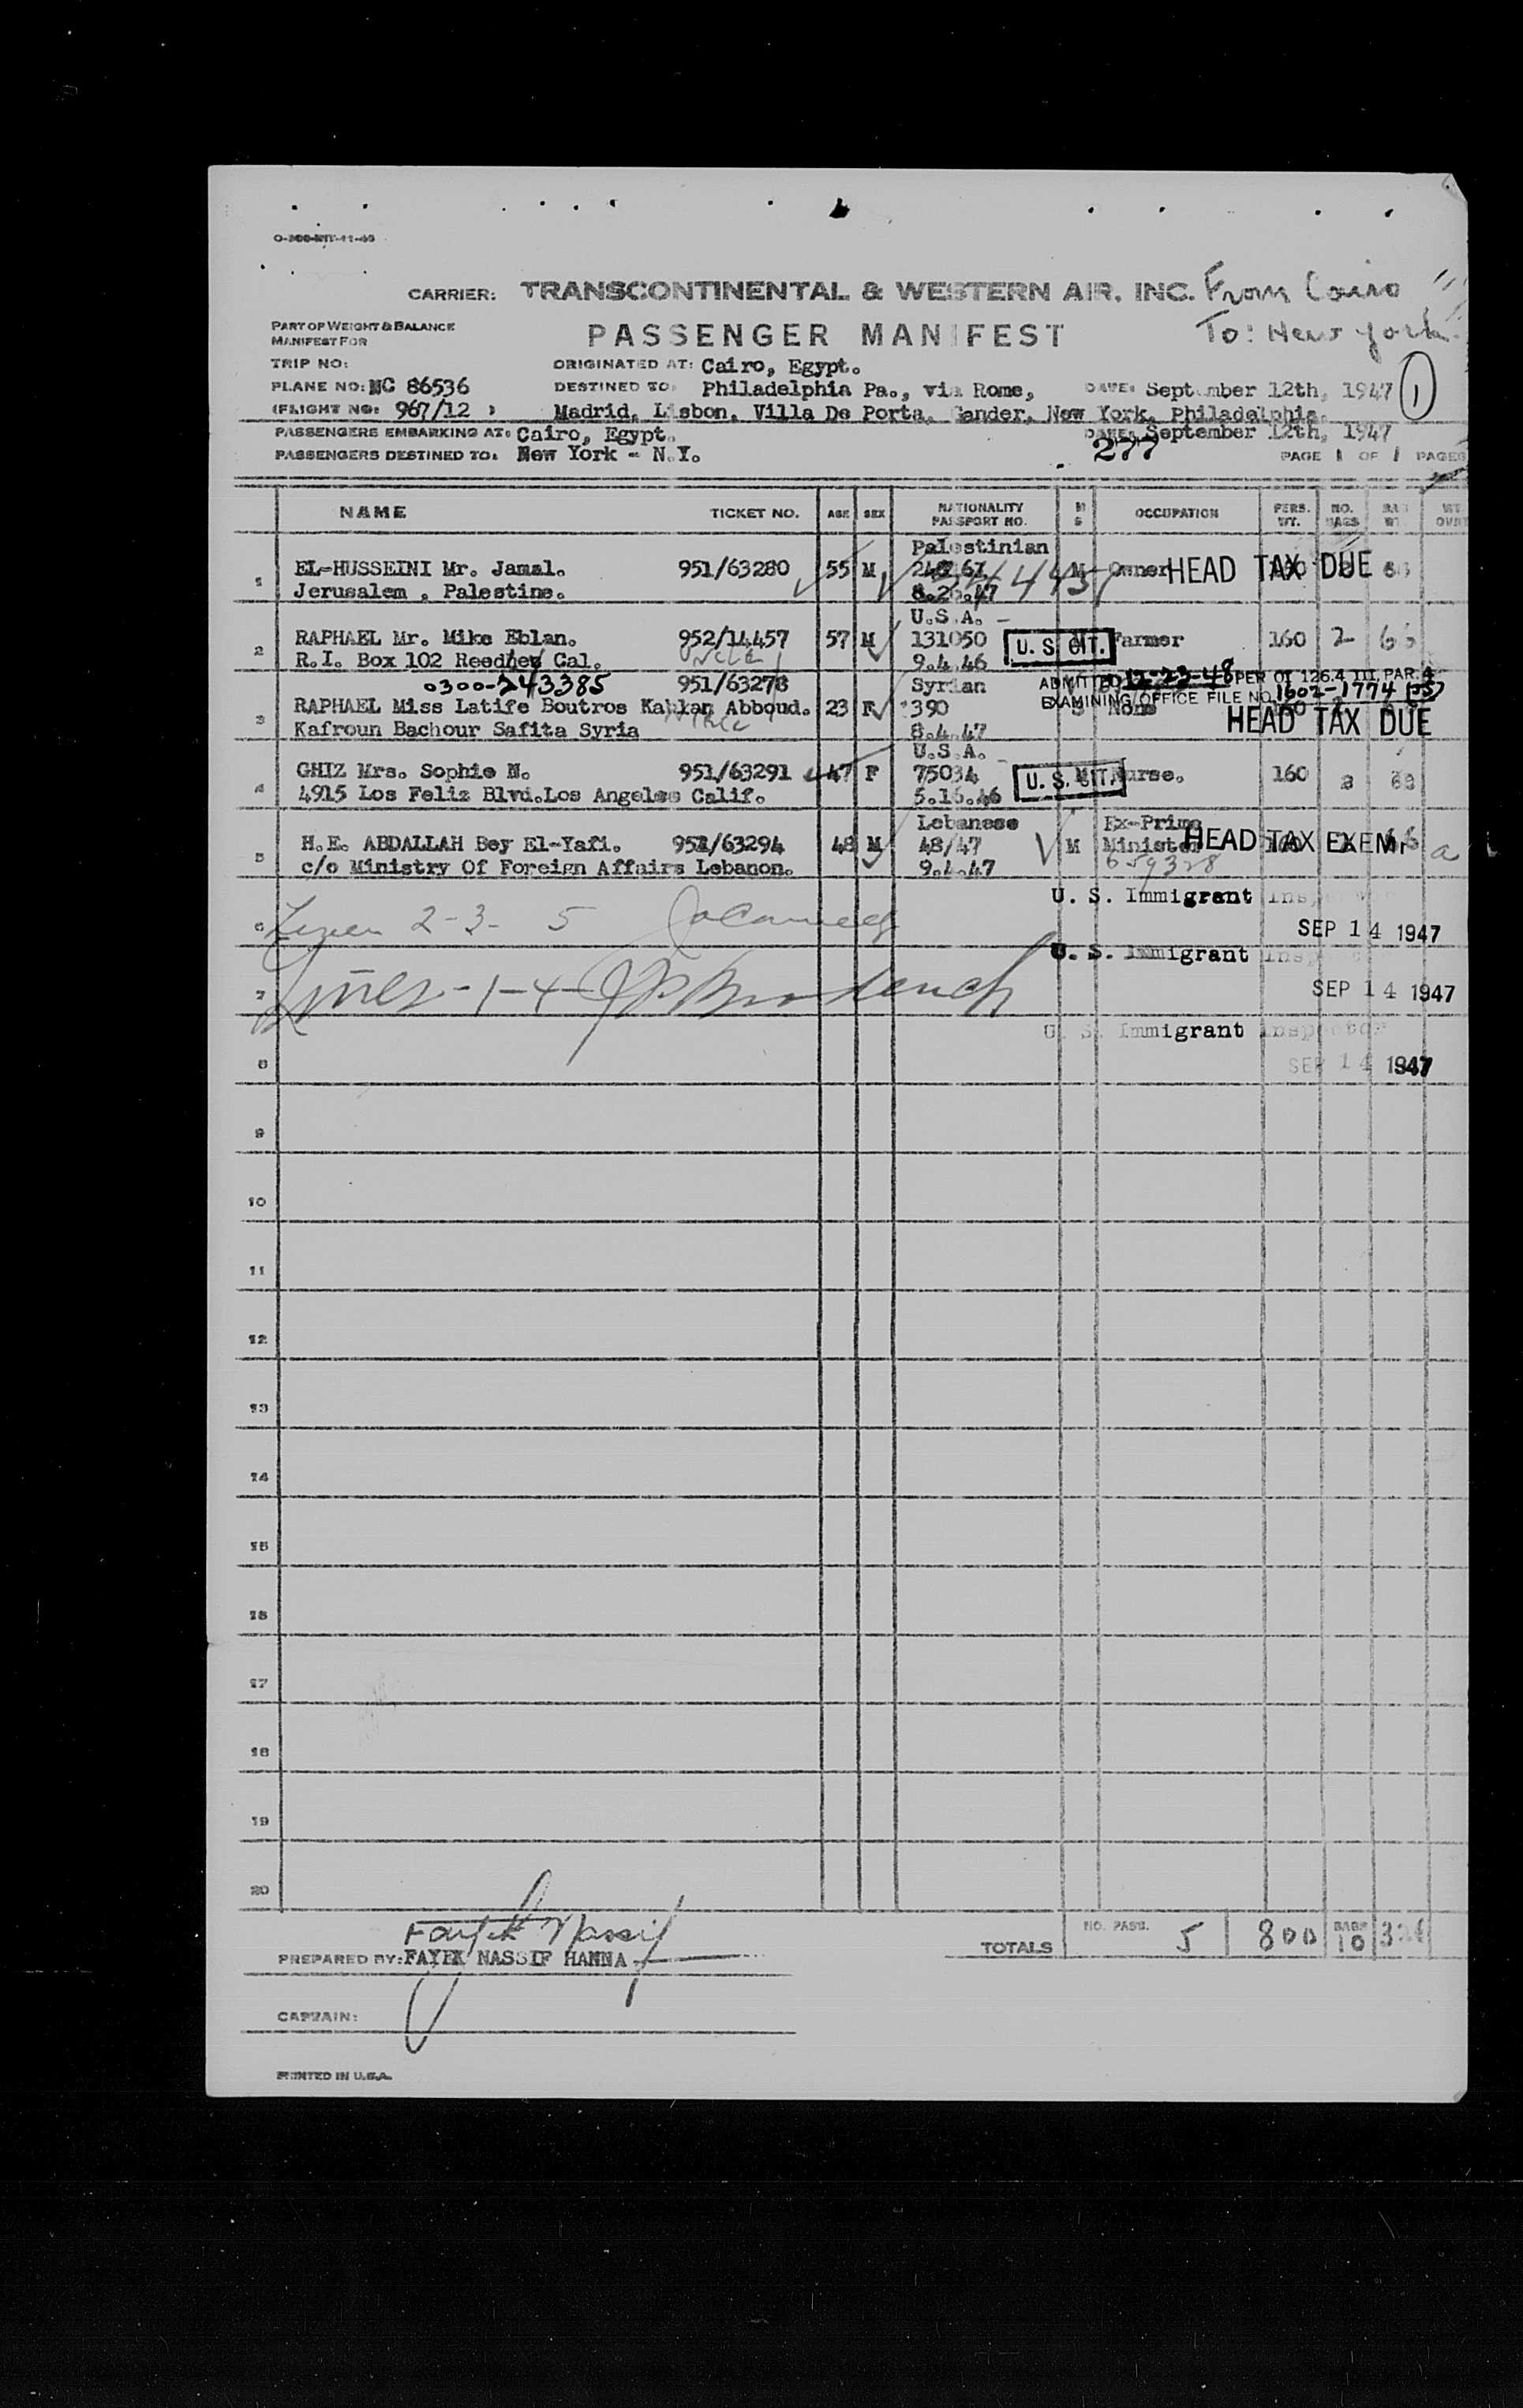 CARRIER: TRANSCONTINENTAL & WESTERN AIR, INC. From Cairo
To: New York
PART OF WEIGHT & BALANCE
MANIFEST FOR
PASSENGER MANIFEST
TRIP NO: ORIGINATED AT: Cairo, Egypt.
PLANE NO: NC 86536 DESTINED TO: Philadelphia Pa., via Rome, DATE: September 12th, 1947 1
(FLIGHT NO: 967/12 ) Madrid, Lisbon, Villa De Porta, Gander, New York, Philadelphia.
PASSENGERS EMBARKING AT: Cairo, Egypt. DATE: September 12th, 1947
PASSENGERS DESTINED TO: New York - N.Y. 277 PAGE 1 OF 1 PAGES
NAME TICKET NO. AGE SEX NATIONALITY PASSPORT NO. M S OCCUPATION PERS. WT. NO. BAGS
Palestinian
1 EL-HUSSEINI Mr. Jamal. 951/63280 55 M M Owner HEAD TAX DUE
Jerusalem , Palestine. 8.26.47
U.S.A.
2 RAPHAEL Mr. Mike Eblan. 952/14457 57 M 131050 U. S. CIT. Farmer 160 2
R.I. Box 102 Reedley Cal. Uncle 9.4.46
0300-243385 951/63278 Syrian ADMITTED 12-23-48 PER OI 126.4 III, PAR. 4
3 RAPHAEL Miss Latife Boutros Kahlan Abboud. 23 F 390 None EXAMINING OFFICE FILE NO. 1602-1774
Kafroun Bachour Safita Syria 8.4.47 HEAD TAX DUE
U.S.A.
4 GHIZ Mrs. Sophie N. 951/63291 47 F 75034 U. S. CIT. Nurse. 160
4915 Los Feliz Blvd.Los Angeles Calif. 5.16.46
Lebanese Ex-Prime
5 H.E. ABDALLAH Bey El-Yafi. 951/63294 48 M 48/47 M Minister HEAD TAX EXEMPT
c/o Ministry Of Foreign Affairs Lebanon. 9.4.47 659328
U. S. Immigrant Inspector
6 2-3- 5 SEP 14 1947
U. S. Immigrant Inspector
7 Lines -1-4- SEP 14 1947
U. S. Immigrant Inspector
8 SEP 14 1947
9
10
11
12
13
14
15
16
17
18
19
20
Fayek Nassif
NO. PASS. 5 800 BAGS 10
TOTALS
PREPARED BY: FAYEK NASSIF HANNA
CAPTAIN:
PRINTED IN U.S.A.